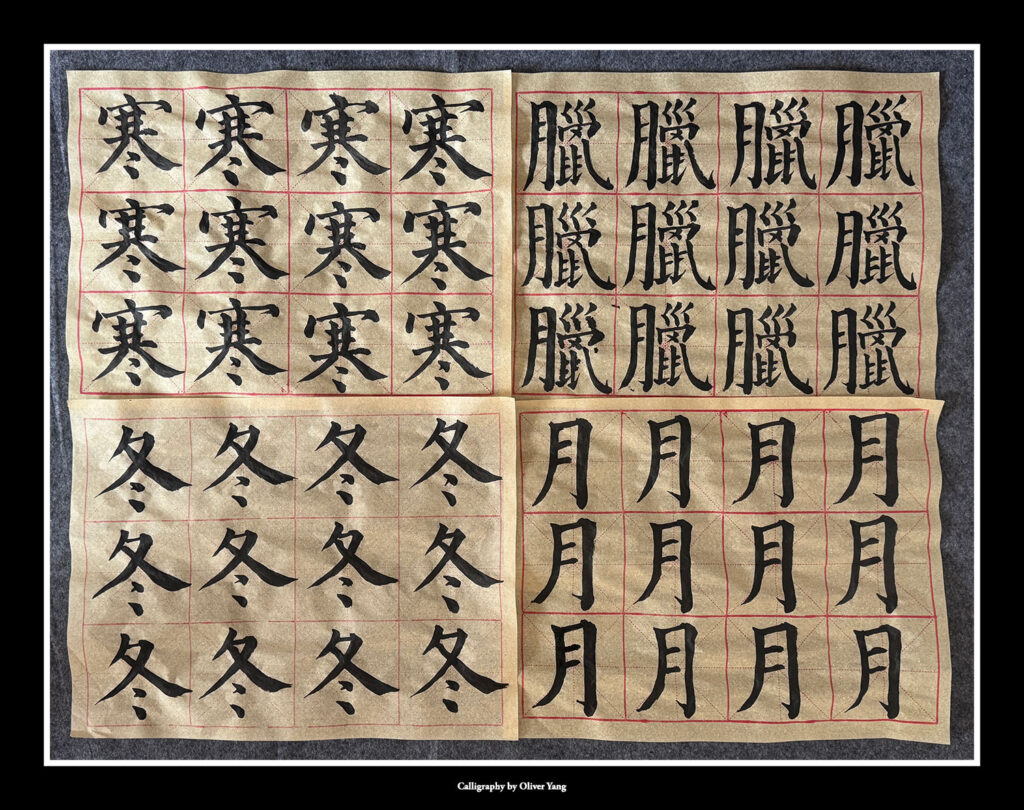 寒寒寒寒
寒寒寒寒
寒寒寒寒
臘臘臘臘
臘臘臘臘
臘臘臘臘
冬冬冬冬
冬冬冬冬
冬冬冬冬
月月月月
月月月月
月月月月
Calligraphy by Oliver Yang